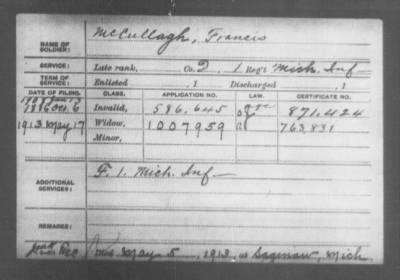 McCullagh, Francis
NAME OF SOLDIER:
SERVICE: Late rank, Co. D, 1 Reg't Mich. Inf
TERM OF SERVICE: Enlisted , 1 Discharged , 1
DATE OF FILING. CLASS. APPLICATION NO. LAW. CERTIFICATE NO.
1886 Oct. 6 Invalid, 586,645 871,424
1913 May 17 Widow, 1007959 763,831
Minor,
ADDITIONAL SERVICES: F. 1. Mich. Inf
REMARKS:
Died May 5, 1913, at Saginaw, Mich